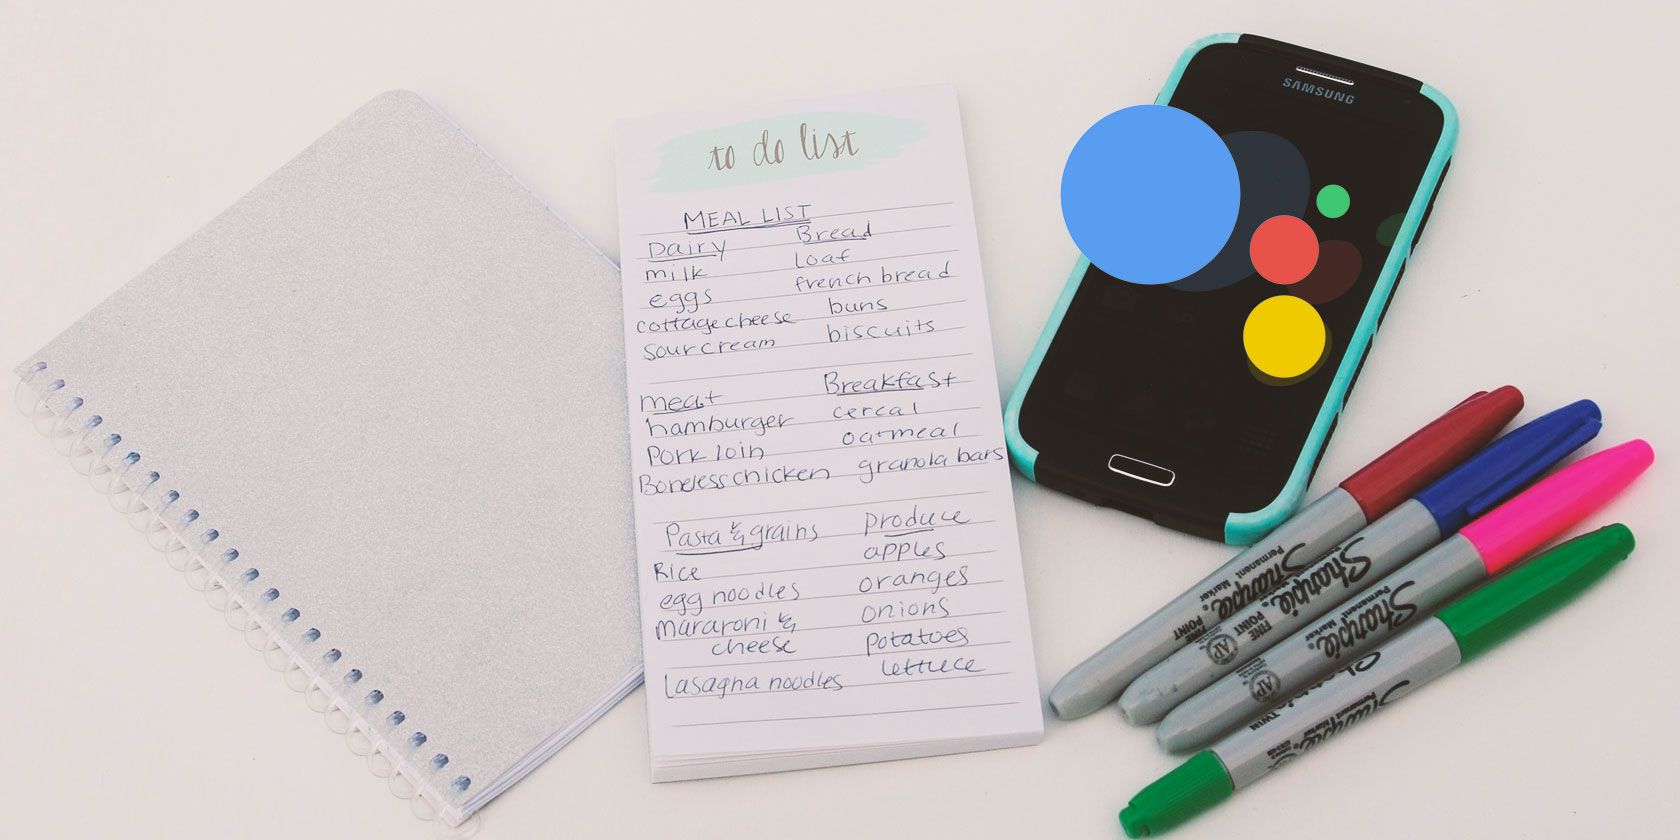 to do list
MEAL LIST
Dairy
milk
eggs
cottage cheese
sour cream
Bread
loaf
french bread
buns
biscuits
meat
hamburger
Pork loin
Boneless chicken
Breakfast
cereal
oatmeal
granola bars
Pasta & grains
Rice
egg noodles
mararoni &
cheese
lasagna noodles
produce
apples
oranges
onions
potatoes
lettuce
SAMSUNG
Sharpie
Permanent Marker
FINE POINT
Sharpie
Permanent Marker
FINE POINT
AP
Sharpie
Permanent Marker
AP
Sharpie
Permanent Marker
TWIN